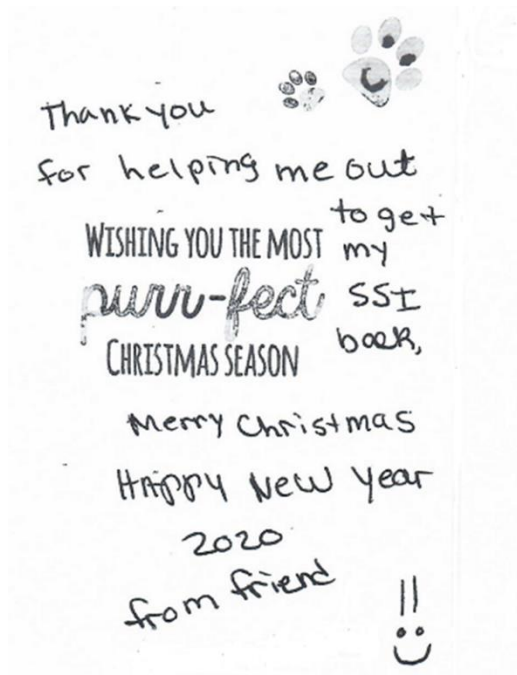 Thank you
for helping me out
to get
my
SSI
back,
WISHING YOU THE MOST
purr-fect
CHRISTMAS SEASON
Merry Christmas
HAPPY NEW Year
2020
from friend
!!